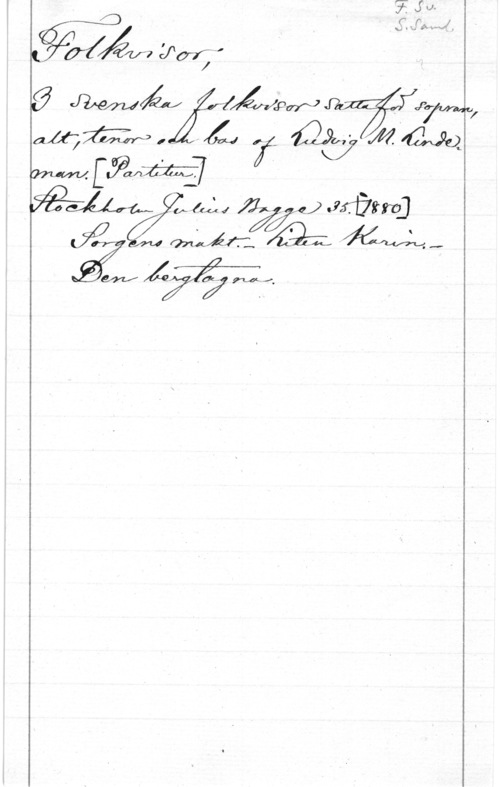 F. Sv.
S. Saml.
Folkvisor,
3 svenska folkvisor satta för sopran,
alt, tenor och bas af Ludvig M. Linde-
man. [Partitur.]
Stockholm Julius Bagge 35. [1880]
Sorgens makt. - Liten Karin. -
Den bergtagna.